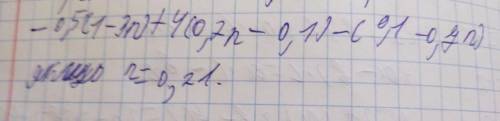 - 0,5(1-3n)+4(0,7n - 0,1) - (0,1 - 0,7n)
якщо n = 0,21.